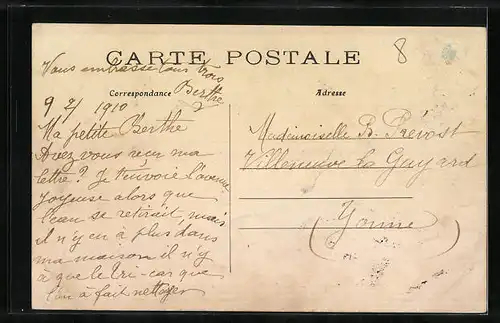 CARTE POSTALE
8
Vous embrasse tous trois
Berthe
Correspondance
Adresse
9 2/ 1910
Ma petite Berthe
Avez vous reçu ma
lettre? Je t'envoie l'avenue
Joyeuse alors que
l'eau se retirait, mais
il n'y en a plus dans
ma maison il n'y
a que le tri-car que
l'on a fait nettoyer
Mademoiselle B. Prévost
Villeneuve la Guyard
(Yonne)